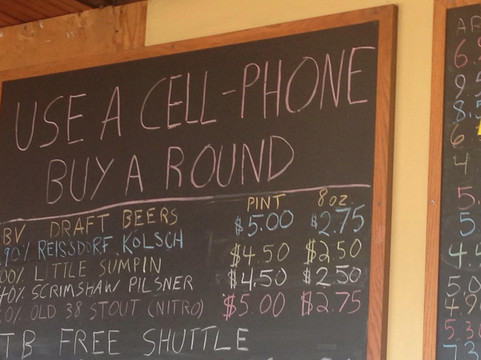 USE A CELL-PHONE
BUY A ROUND
BV DRAFT BEERS PINT 8 oz.
REISSDORF KÖLSCH $5.00 $2.75
LITTLE SUMPIN $4.50 $2.50
SCRIMSHAW PILSNER $4.50 $2.50
OLD 38 STOUT (NITRO) $5.00 $2.75
FREE SHUTTLE